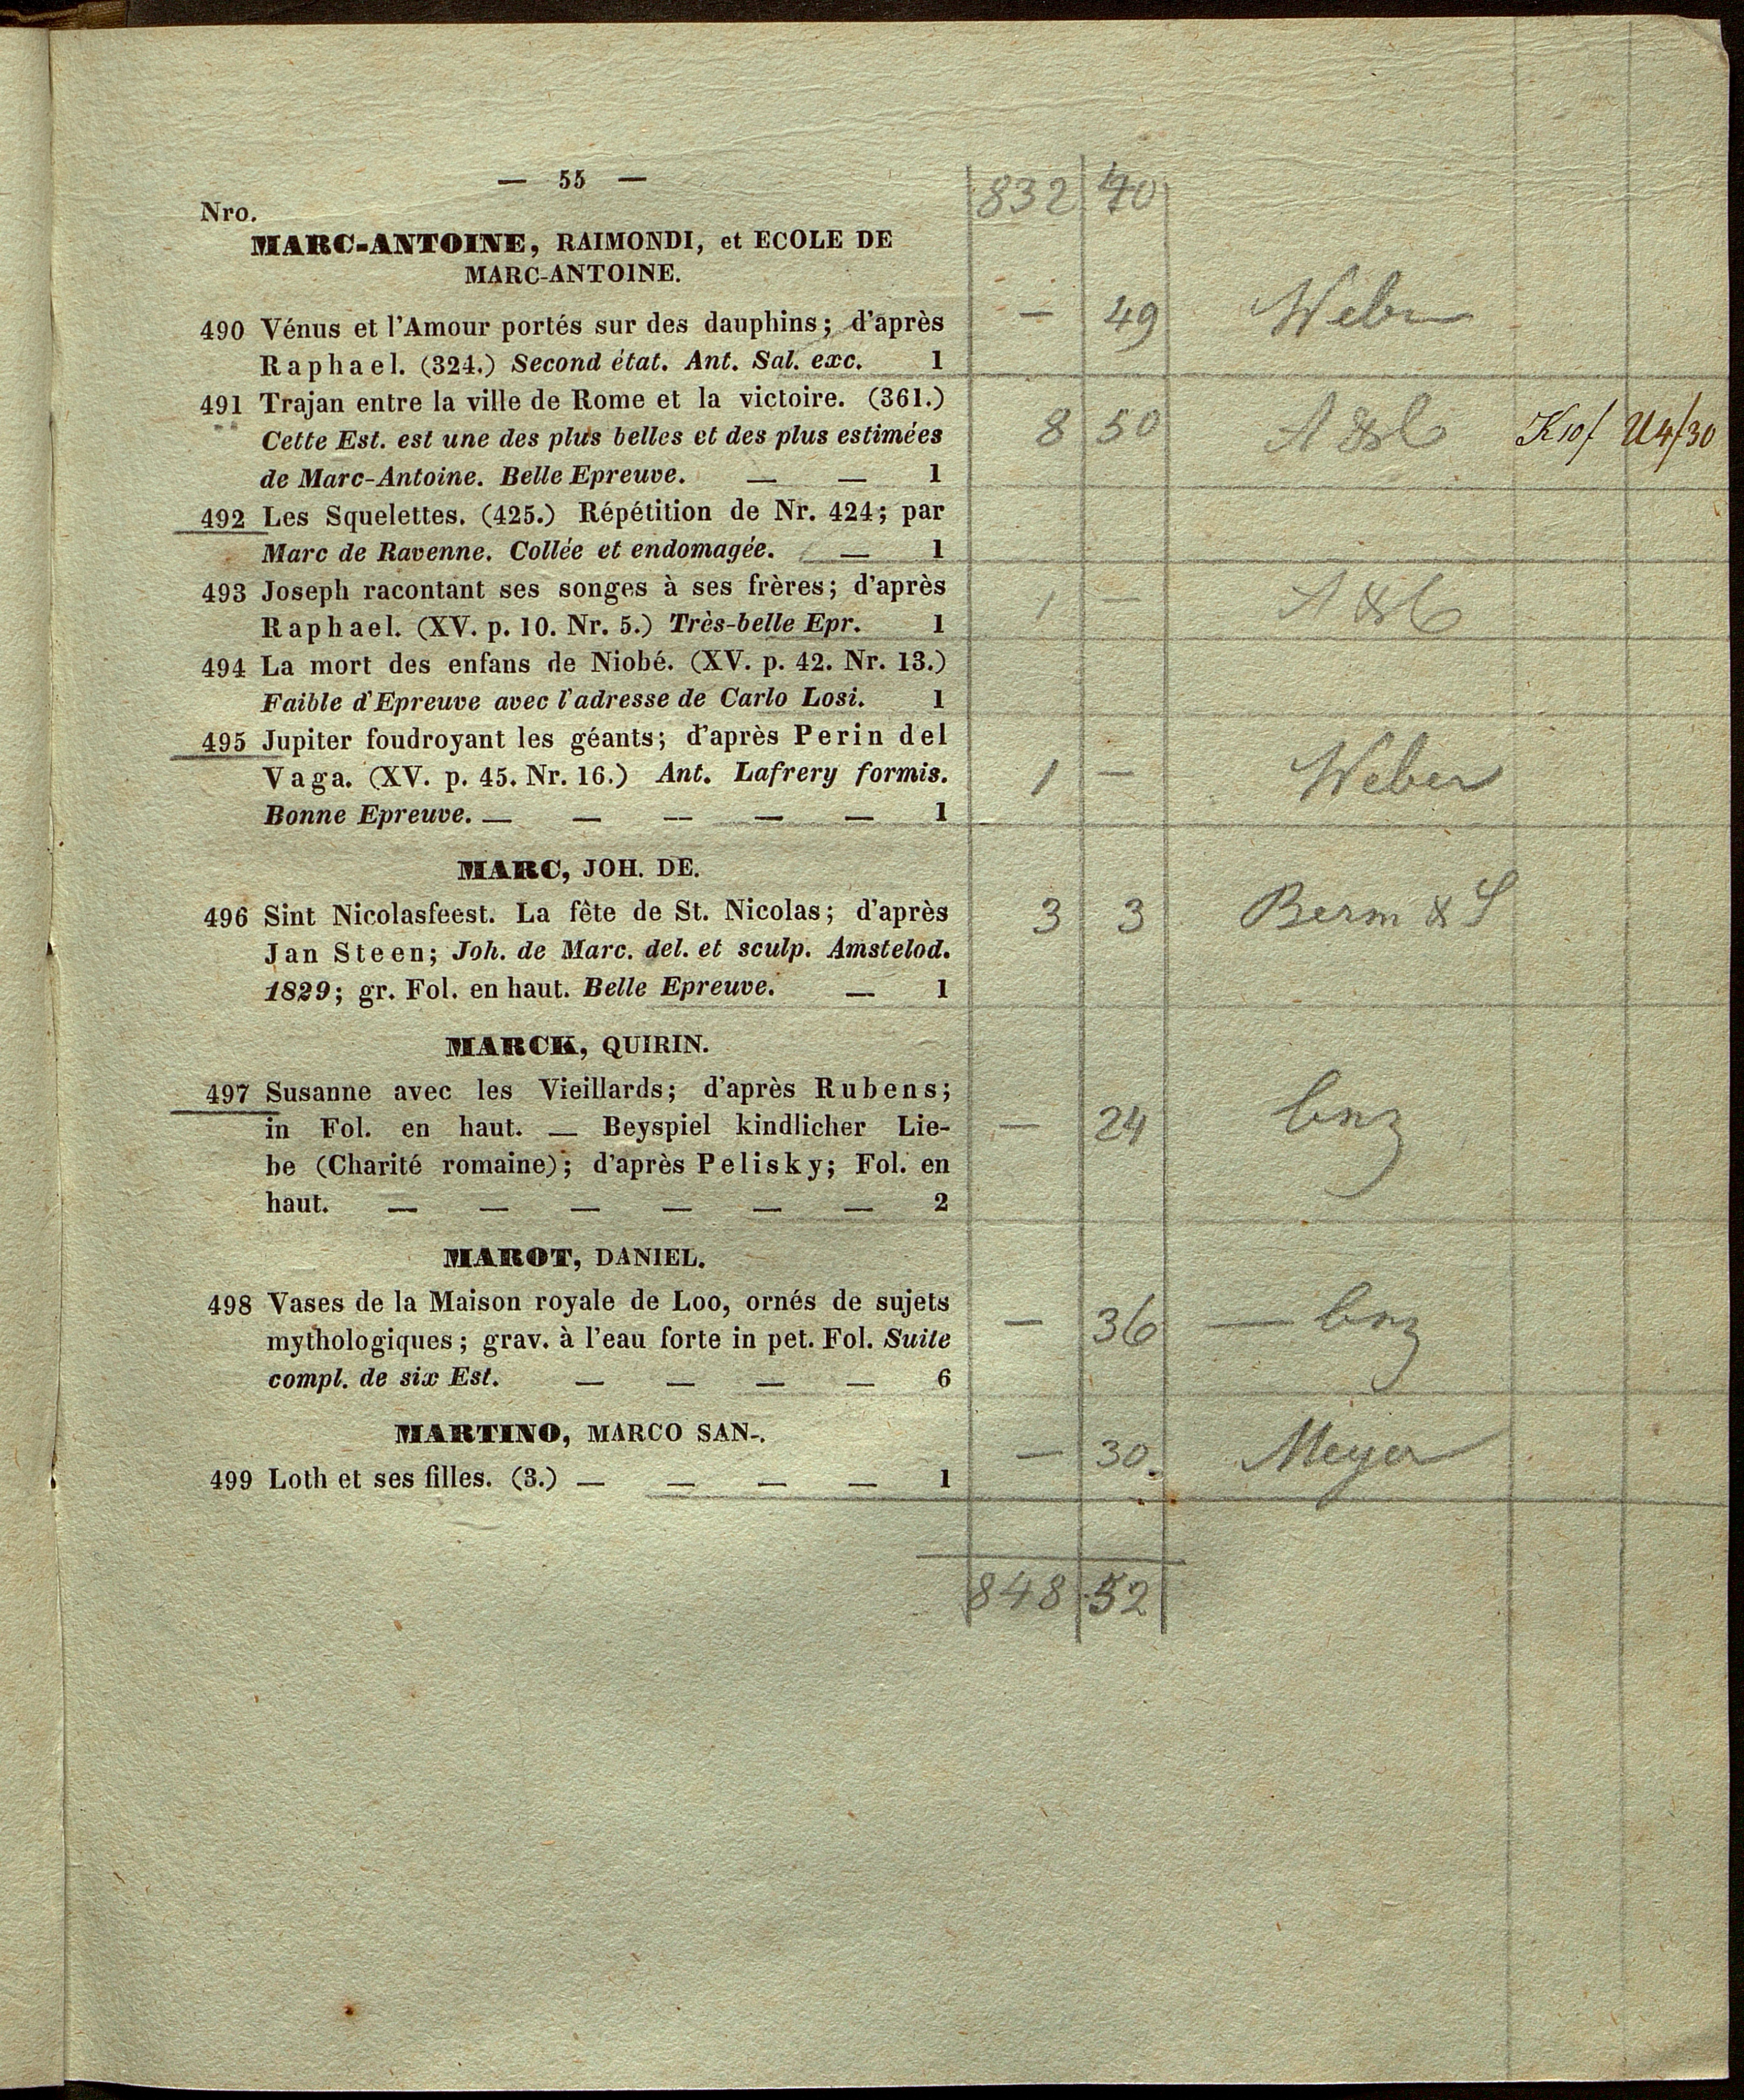 — 55 —
832 40
Nro.
MARC-ANTOINE, RAIMONDI, et ECOLE DE
MARC-ANTOINE.
490 Vénus et l'Amour portés sur des dauphins; d'après
Raphael. (324.) Second état. Ant. Sal. exc. 1
— 49 Weber
491 Trajan entre la ville de Rome et la victoire. (361.)
Cette Est. est une des plus belles et des plus estimées
de Marc-Antoine. Belle Epreuve. — — 1
8 50 A & C K10/ U4/30
492 Les Squelettes. (425.) Répétition de Nr. 424; par
Marc de Ravenne. Collée et endomagée. — 1
493 Joseph racontant ses songes à ses frères; d'après
Raphael. (XV. p. 10. Nr. 5.) Très-belle Epr. 1
1 — A & C
494 La mort des enfans de Niobé. (XV. p. 42. Nr. 13.)
Faible d'Epreuve avec l'adresse de Carlo Losi. 1
495 Jupiter foudroyant les géants; d'après Perin del
Vaga. (XV. p. 45. Nr. 16.) Ant. Lafrery formis.
Bonne Epreuve. — — — — — 1
1 — Weber
MARC, JOH. DE.
496 Sint Nicolasfeest. La fête de St. Nicolas; d'après
Jan Steen; Joh. de Marc. del. et sculp. Amstelod.
1829; gr. Fol. en haut. Belle Epreuve. — 1
3 3 Berm & S
MARCK, QUIRIN.
497 Susanne avec les Vieillards; d'après Rubens;
in Fol. en haut. — Beyspiel kindlicher Lie-
be (Charité romaine); d'après Pelisky; Fol. en
haut. — — — — — — 2
— 24
MAROT, DANIEL.
498 Vases de la Maison royale de Loo, ornés de sujets
mythologiques; grav. à l'eau forte in pet. Fol. Suite
compl. de six Est. — — — — 6
— 36 —
MARTINO, MARCO SAN-.
499 Loth et ses filles. (3.) — — — — 1
— 30. Meyer
848 52